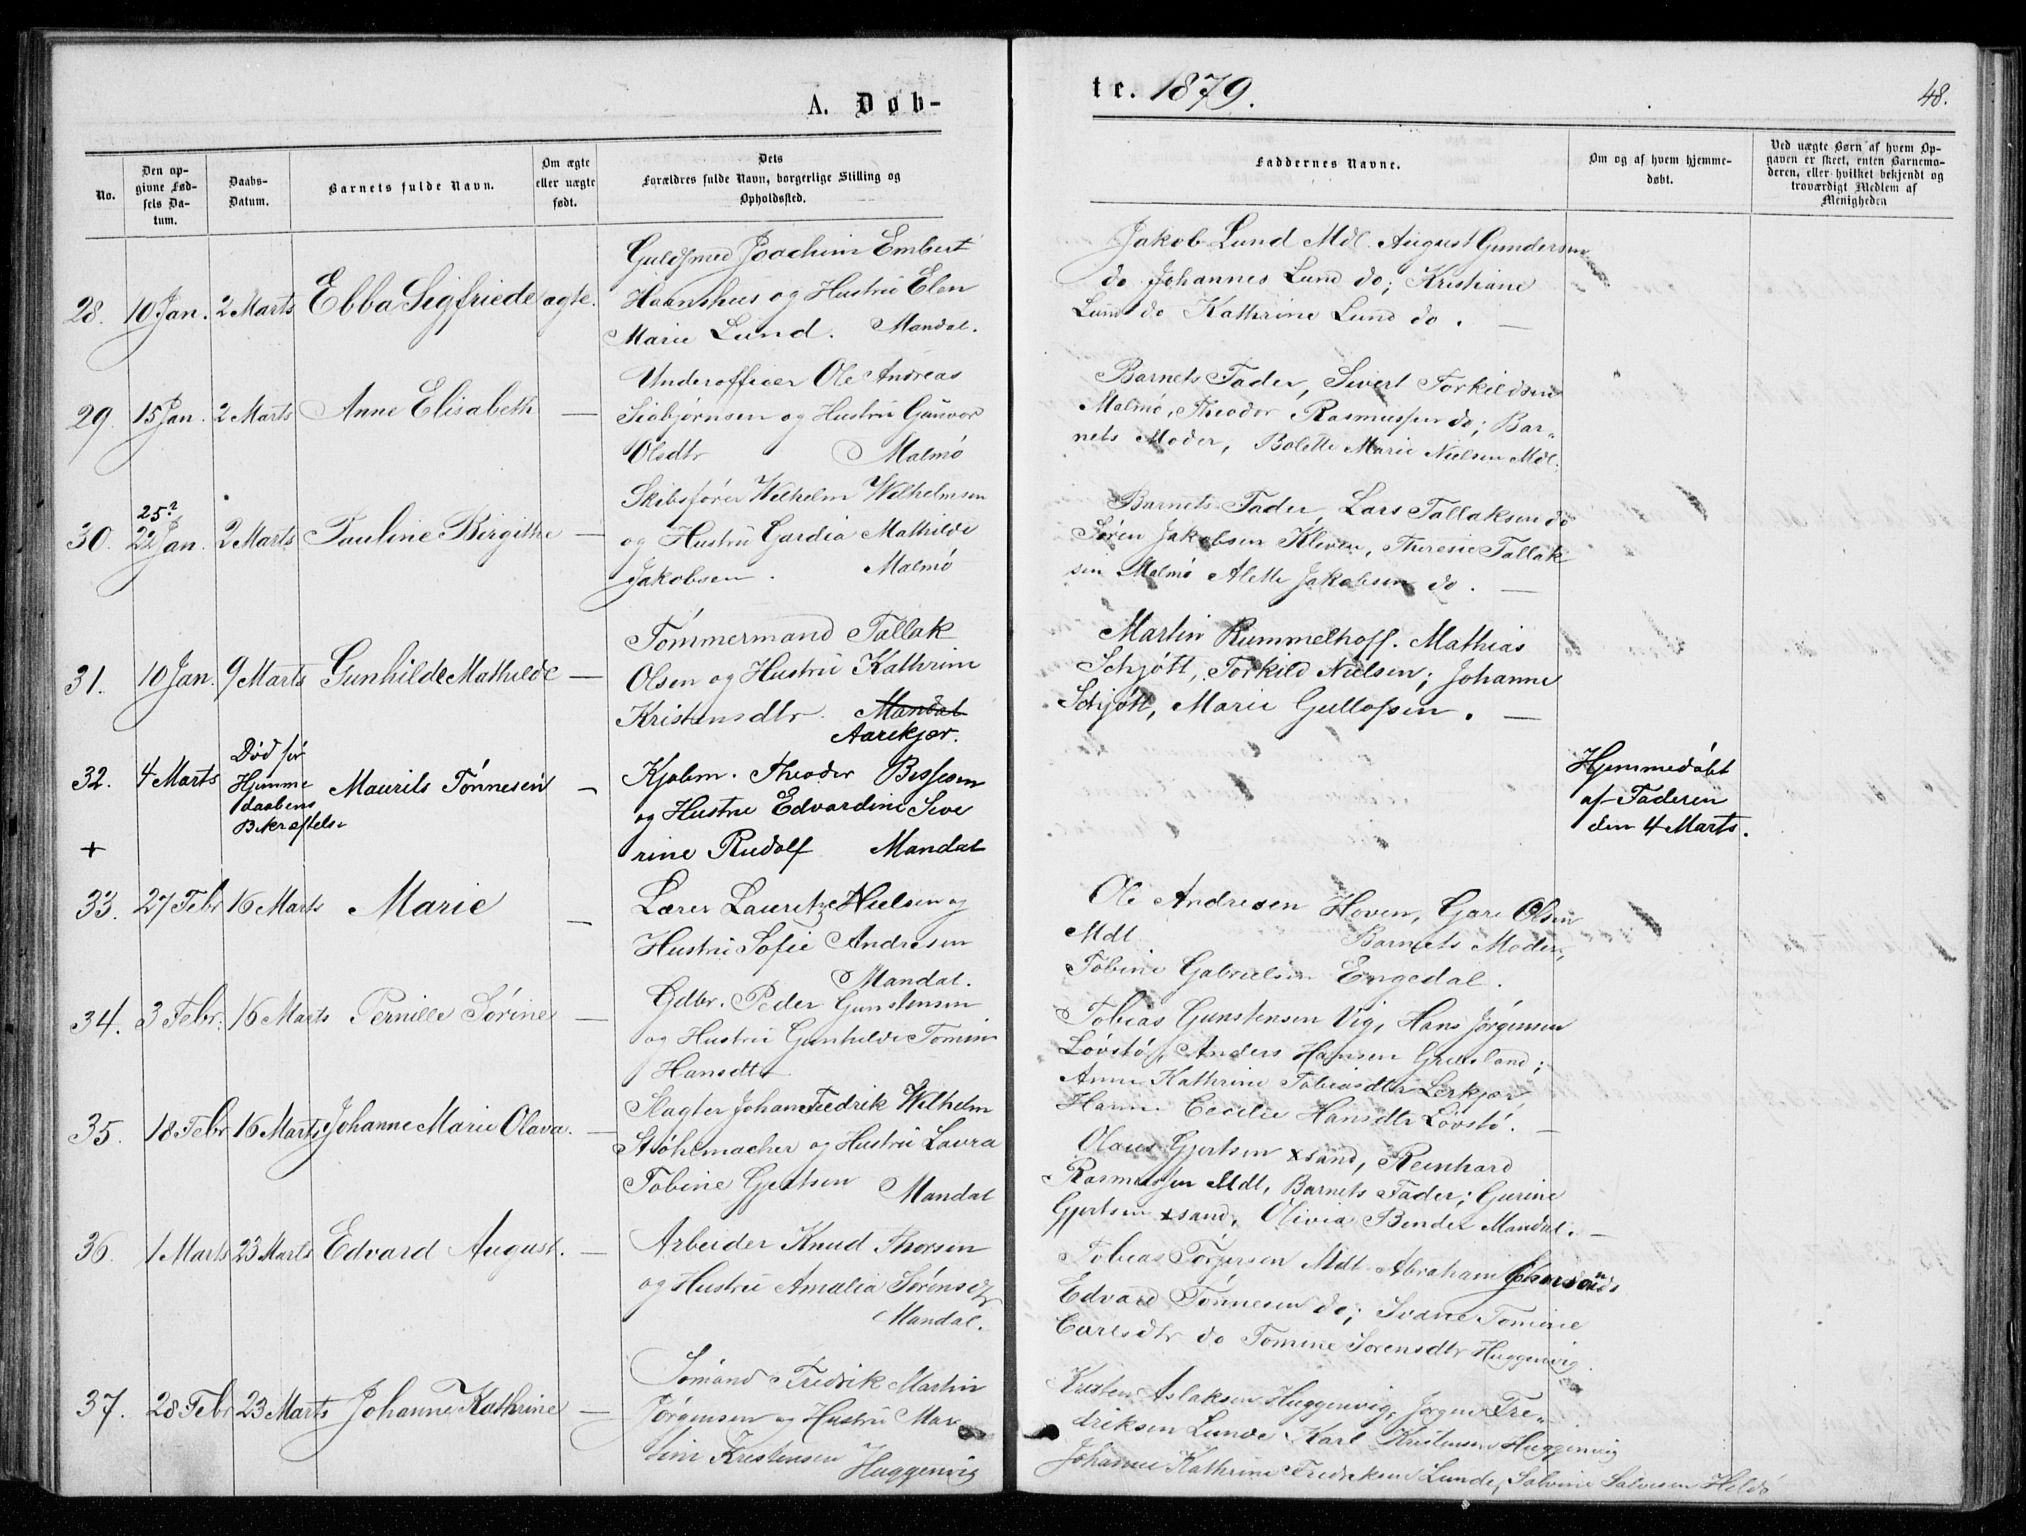 A. Døb-
No.
Den op-
givne Fød-
sels Da-
tum.
Daabs-
Datum.
Barnets fulde Navn.
Om ægte
eller uægte
født.
Dets
Forældres fulde Navn, borgerlige Stilling og
Opholdssted.
28. 10 Jan. 2 Marts Ebba Sigfriede ægte.
Guldsmed Joachim Embert
Haanshus og Hustru Elen
Marie Lund. Mandal.
29. 15 Jan. 2 Marts Anne Elisabeth —
Underofficer Ole Andreas
Seobjørnsen og Hustru Gunvor
Olsdtr Malmø
30. 25? 22 Jan. 2 Marts Pauline Birgithe —
Skibsfører Wilhelm Wilhelmsen
og Hustru Gardia Mathilde
Jakobsen. Malmø
31. 10 Jan. 9 Marts Gunhilde Mathilde —
Tømmermand Tallak
Olsen og Hustru Kathrine
Kristensdtr. Mandal
Aarekjær.
32. 4 Marts
+
Død før
Hjemme
daabens
Bekræftelse
Maurits Tønnesen —
Kjøbm. Theodor Bessesen
og Hustru Edvardine Seve
rine Rudolf Mandal
33. 27 Febr 16 Marts Marie —
Lærer Lauritz Nielsen og
Hustru Sofie Andresen
Mandal.
34. 3 Febr. 16 Marts Pernille Sørine —
Gdbr. Peder Gunstensen
og Hustru Gunhilde Tomine
Hansdtr
35. 18 Febr 16 Marts Johanne Marie Olava. —
Slagter Johan Fredrik Wilhelm
Støhlmacher og Hustru Laura
Tobine Gjertsen Mandal
36. 1 Marts 23 Marts Edvard August. —
Arbeider Knud Thorsen
og Hustru Amalia Sørensdtr
Mandal.
37. 28 Febr 23 Marts Johanne Kathrine —
Sømand Fredrik Martin
Jørgensen og Hustru Mar
tine Kristensen
Huggenvig
te. 1879.
48.
Faddernes Navne.
Om og af hvem hjemme-
døbt.
Ved uægte Børn af hvem Op-
gaven er skeet, enten Barnemo-
deren, eller hvilket bekjendt og
troværdigt Medlem af
Menigheden
Jakob Lund Mdl. August Gundersen
do Johannes Lund do; Kristiane
Lund do Kathrine Lund do. —
Barnets Fader, Sivert Torkildsen
Malmø, Theodor Rasmussen do; Bar-
nets Moder, Bolette Marie Nielsen Mdl.
Barnets Fader, Lars Tallaksen do
Søren Jakobsen Kleven, Theresie Tallak
sen Malmø Alette Jakobsen do. —
Martin Rummelhoff. Mathias
Schjøtt, Torkild Nielsen; Johanne
Schjøtt, Marie Gullofsen. —
Hjemmedøbt
af Faderen
den 4 Marts.
Ole Andresen Hoven, Gare Olsen
Mdl Barnets Moder,
Tobine Gabrielsen Engedal.
Tobias Gunstensen Vig, Hans Jørgensen
Løvstø, Anders Hansen Grusland;
Anne Kathrine Tobiasdtr Lerkjær,
Hanne Cecilie Hansdtr Løvstø. —
Olaus Gjertsen xsand, Reinhard
Rasmussen Mdl, Barnets Fader; Gurine
Gjertsen xsand, Olivia Bender Mandal. —
Tobias Torjersen Mdl Abraham
Edvard Tønnesen do; Svane Tomine
Carlsdtr do Tomine Sørensdtr Huggenvig.
Kristen Aslaksen Huggenvig, Jørgen Fre-
driksen Lunde Karl Kristensen Huggenvig
Johanne Kathrine Fredriksen Lunde, Salvine Salvesen Heldø